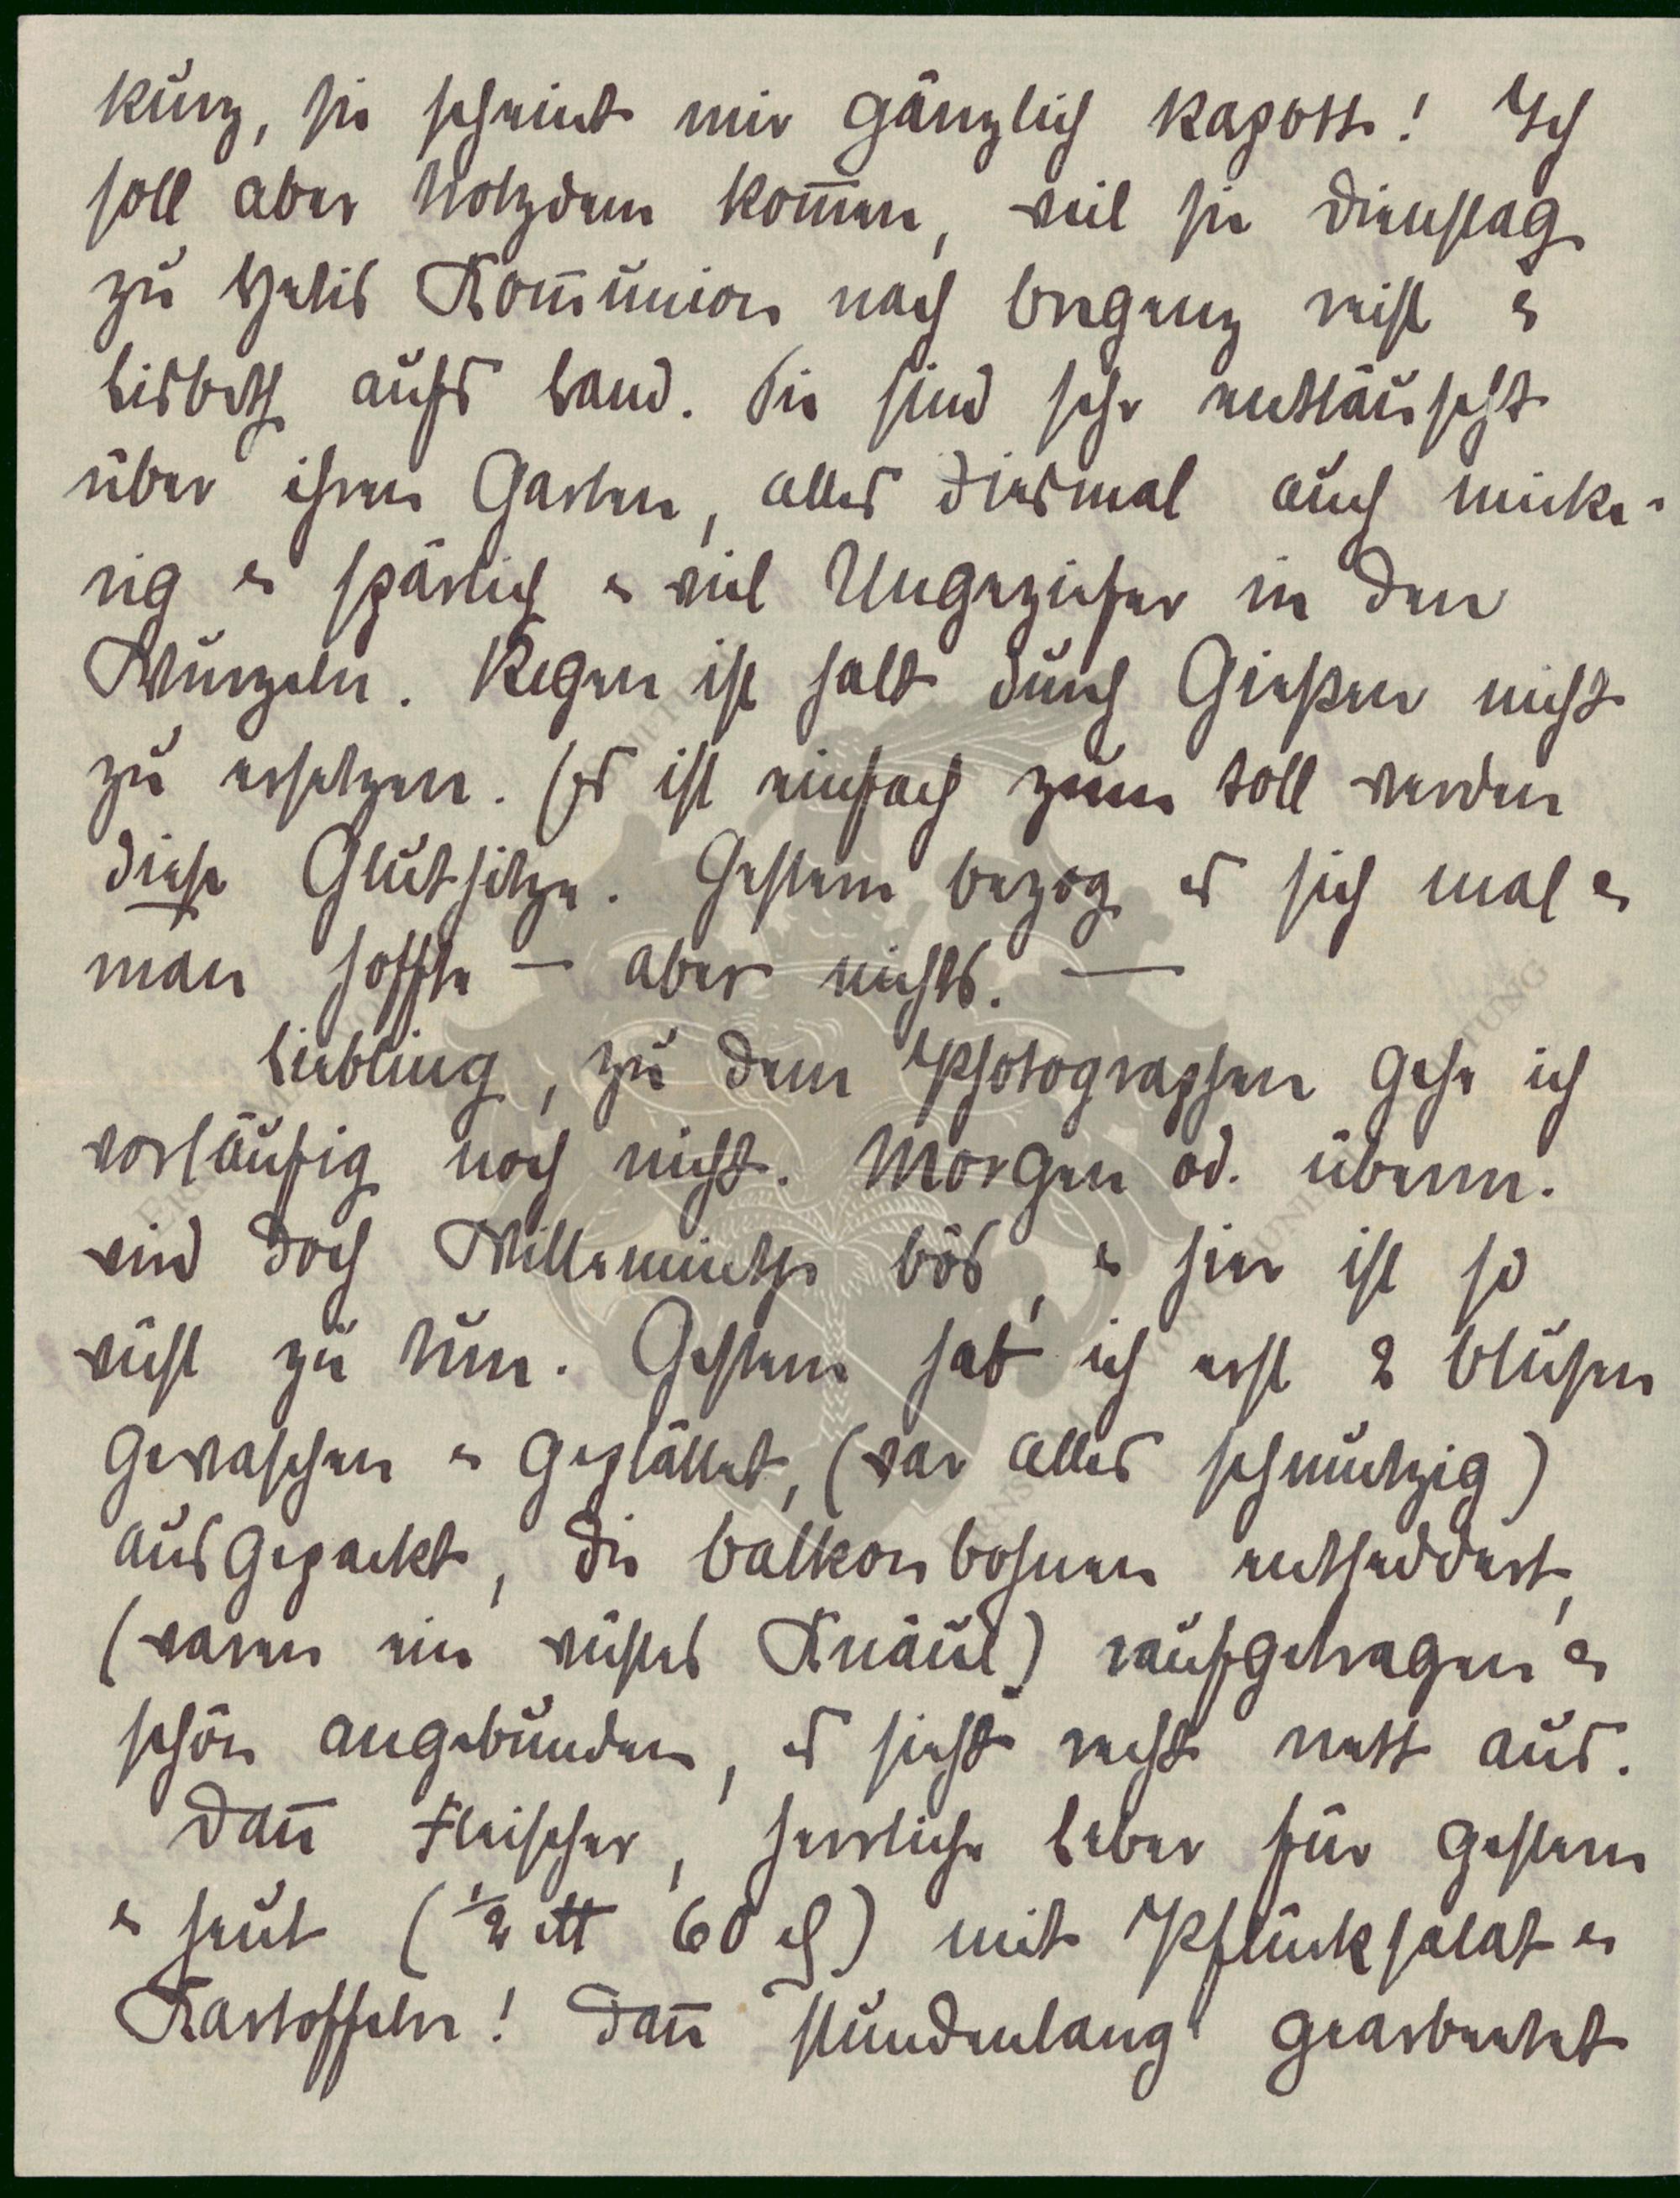 kurz, sie scheint mir gänzlich kapott! Ich
soll aber trotzdem kom̄en, weil sie Dienstag
zu Helis Kom̄union nach Bregenz reist &
Lisbeth aufs Land. Sie sind sehr enttäuscht
über ihren Garten, alles diesmal auch micke-
rig & spärlich & viel Ungeziefer in den
Wurzeln. Regen ist halt durch Gießen nicht
zu ersetzen. Es ist einfach zum toll werden
diese Gluthitze. Gestern bezog es sich mal &
man hoffte – aber nichts. —
Liebling, zu dem Photographen gehe ich
vorläufig noch nicht. Morgen od. überm.
wird doch bös, & hier ist so
wüst zu tun. Gestern hab ich erst 2 Blusen
gewaschen & geplättet, (war alles schmutzig)
ausgepackt, die Balkonbohnen entheddert,
(waren ein wüstes Knäuel) raufgetragen &
schön angebunden, es sieht recht nett aus.
Dan̄ Fleischer, herrliche Leber für gestern
& heut (½ ℔ 60 ₰) mit Pflücksalat &
Kartoffeln! Dan̄ stundenlang gearbeitet
ERNST VON